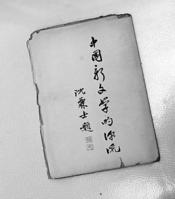 中國新文学的源流
沈兼士題